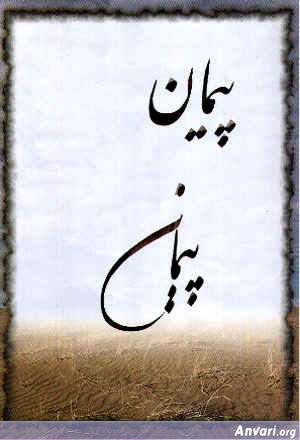 پیمان
پیمان
Anvari.org